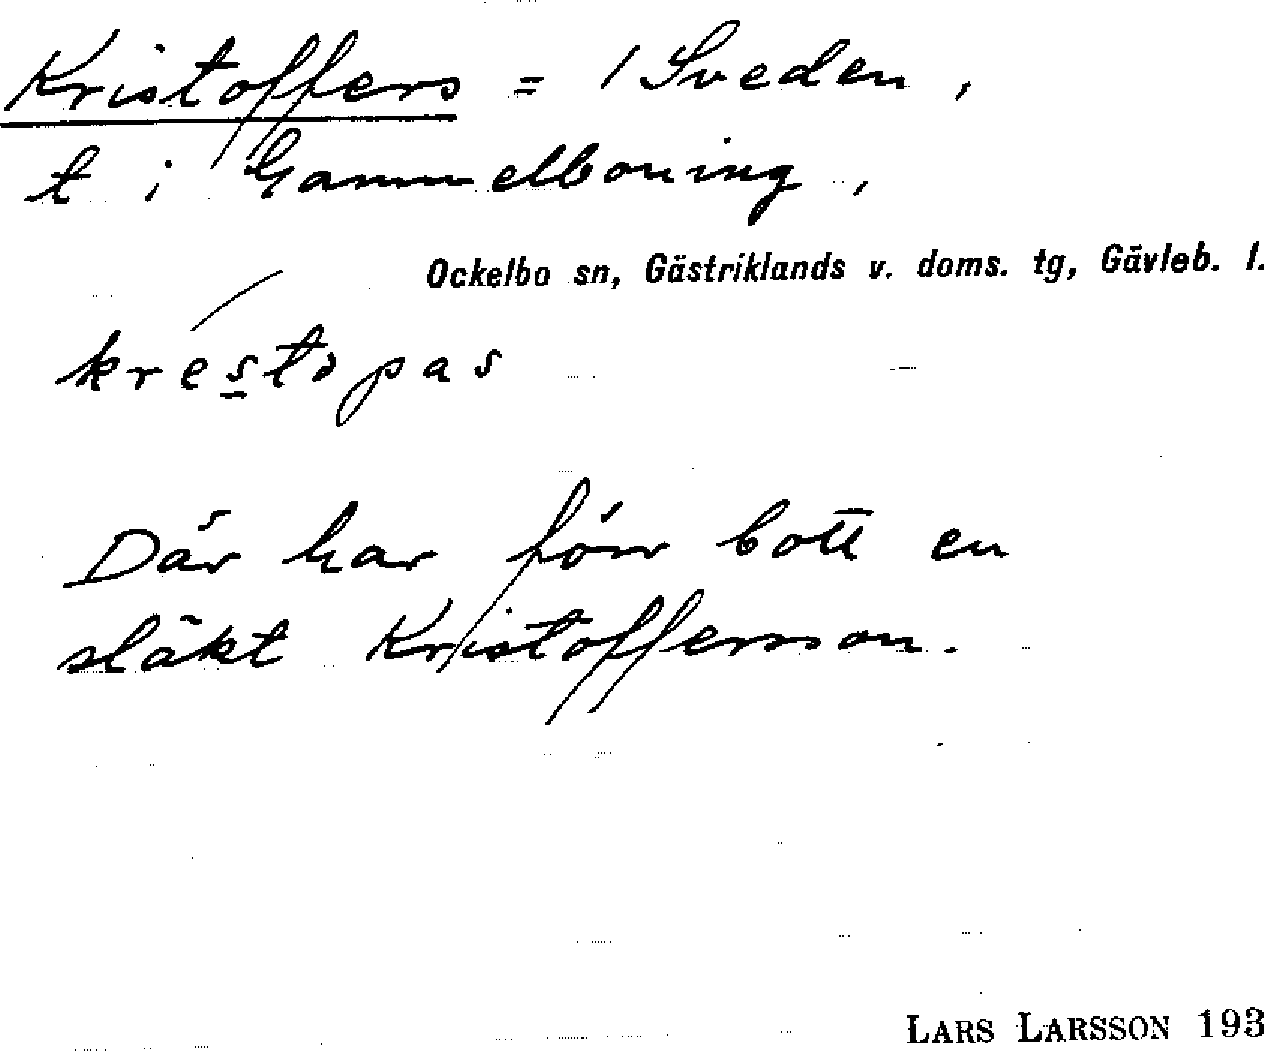 Kristoffers = 1 Sveden,
t i Gammelboning,
Ockelbo sn, Gästriklands v. doms. tg, Gävleb. l.
krestopas
Där har förr bott en
släkt Kristoffersson.
LARS LARSSON 193